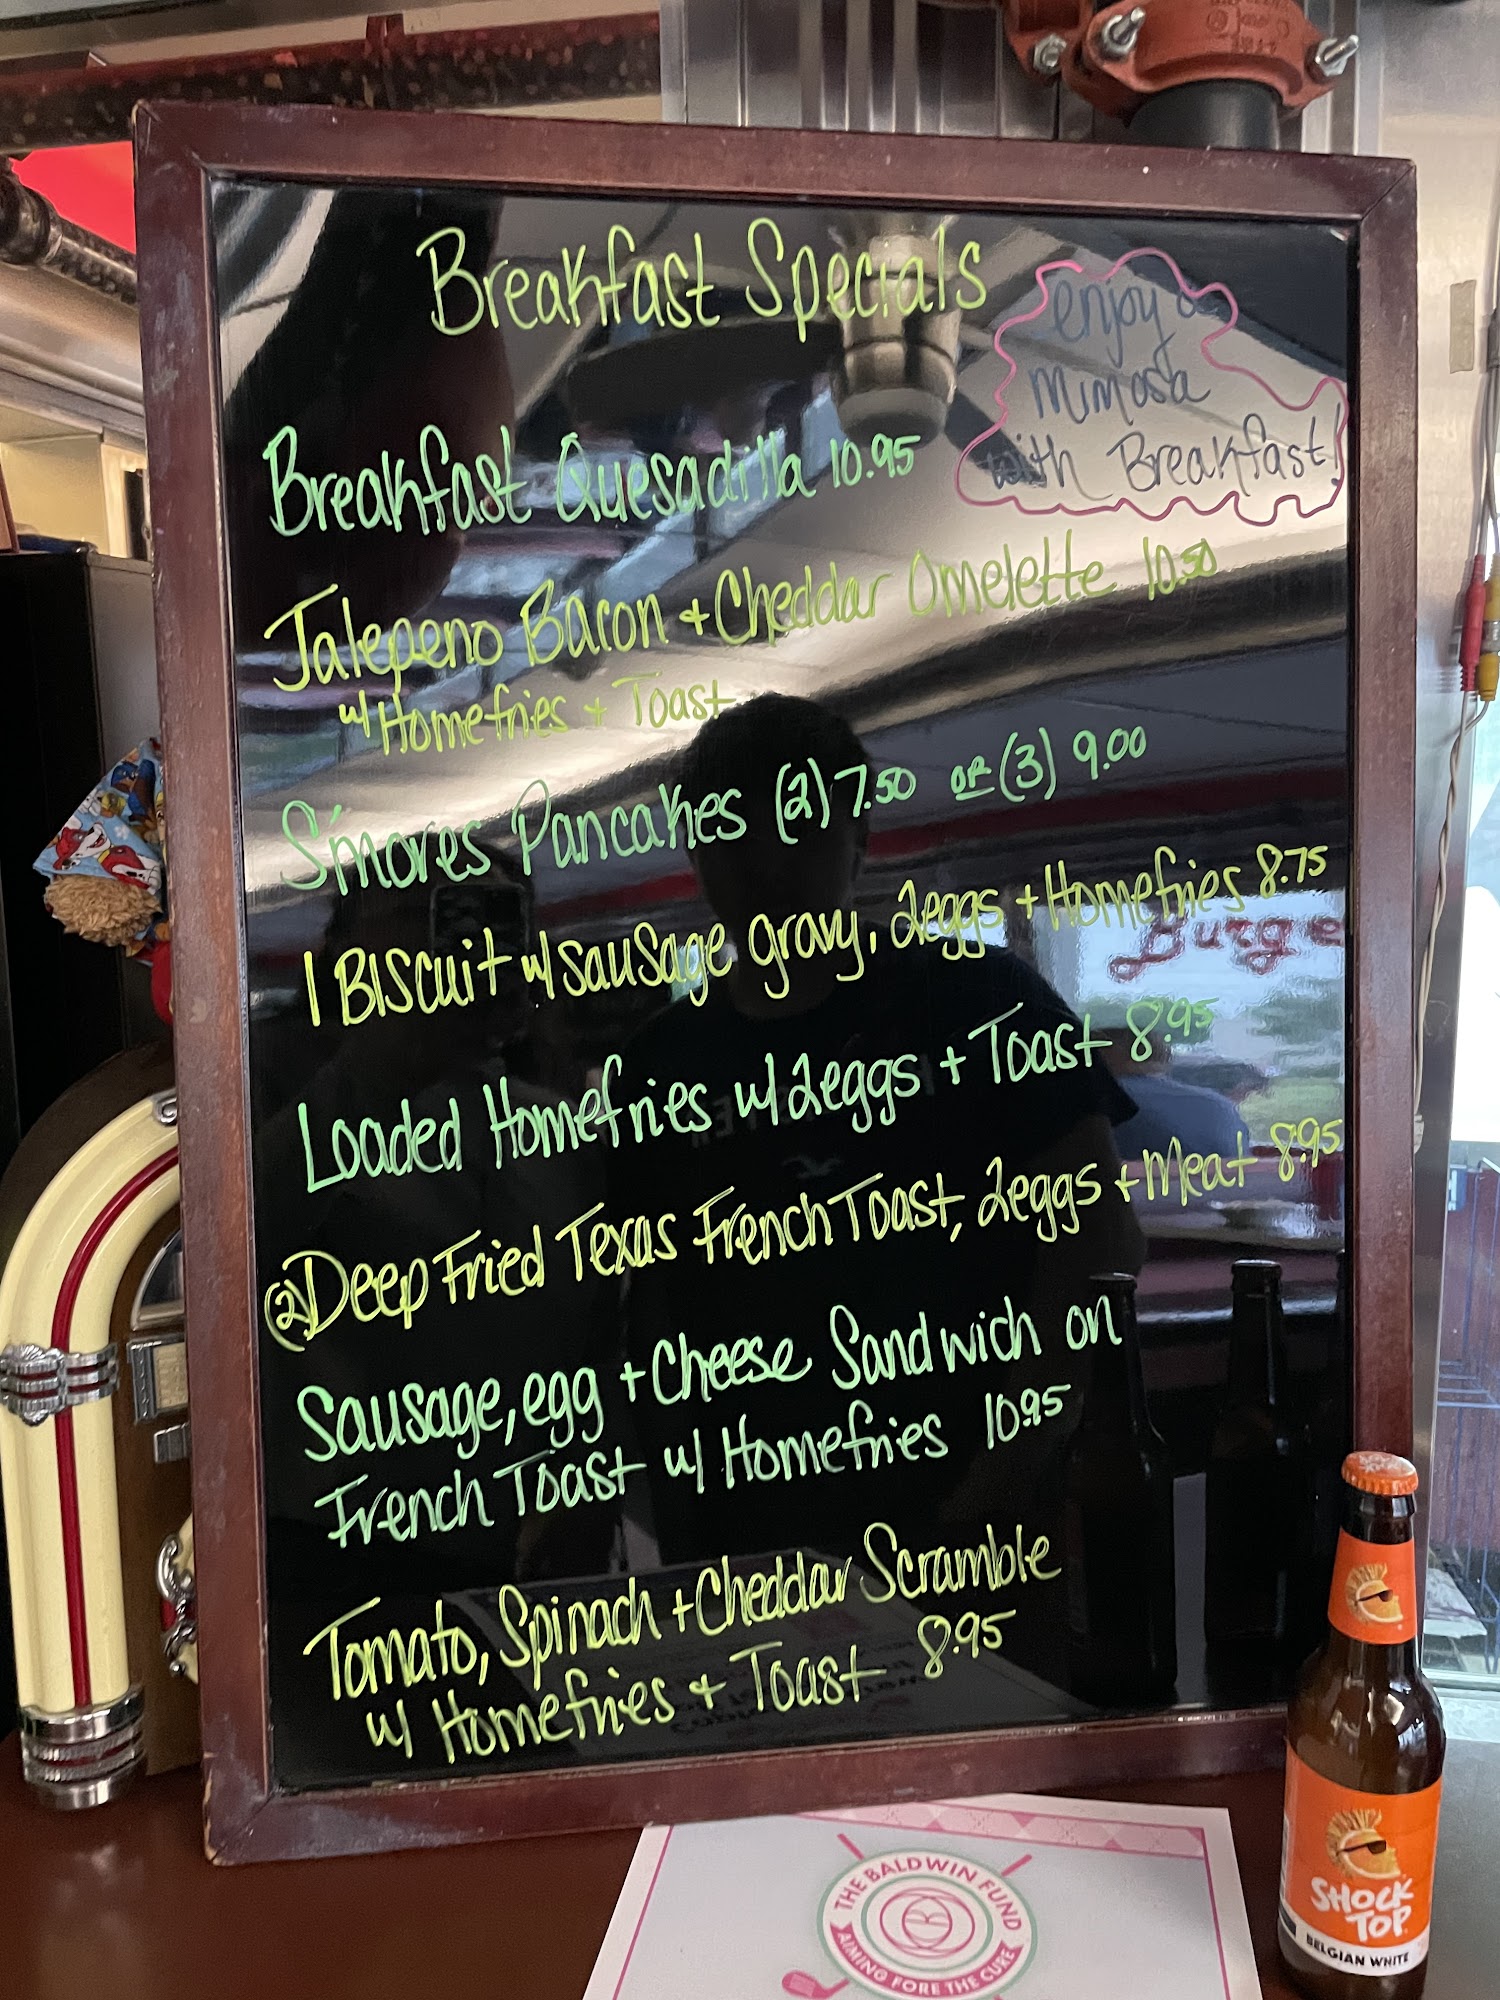 Breakfast Specials
enjoy a
mimosa
with Breakfast!
Breakfast Quesadilla 10.95
Jalepeno Bacon + Cheddar Omelette 10.50
w/ Homefries + Toast
S'mores Pancakes (2) 7.50 or (3) 9.00
1 Biscuit w/ sausage gravy, 2eggs + Homefries 8.75
Burge
Loaded Homefries w/ 2eggs + Toast 8.95
(2) Deep Fried Texas French Toast, 2eggs + Meat 8.95
Sausage, egg + Cheese Sandwich on
French Toast w/ Homefries 10.95
Tomato, Spinach + Cheddar Scramble
w/ Homefries + Toast 8.95
THE BALDWIN FUND
AIMING FORE THE CURE
SHOCK
TOP
BELGIAN WHITE